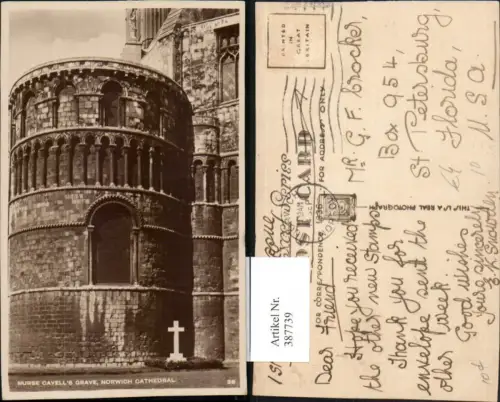 NURSE CAVELL'S GRAVE, NORWICH CATHEDRAL.
PRINTED
IN
GREAT
BRITAIN
POST CARD
FOR CORRESPONDENCE
FOR ADDRESS ONLY
THIS IS A REAL PHOTOGRAPH
Mr. G. F. Crocker,
Box 954,
St Petersburg,
Florida,
U. S. A.
Dear Friend
I hope you received
the other new stamps.
Thank you for
envelope sent the
other week
Good wishes
Yours sincerely
10d
Artikel Nr.
387739